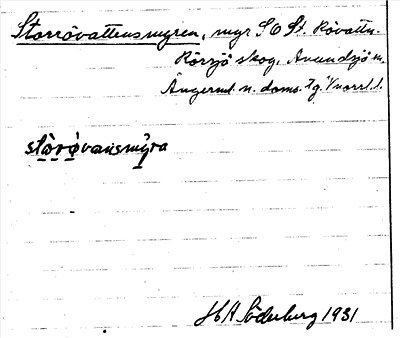 Storrövattensmyren, myr S O St. Rövattn.
Rörsjö skog, Avundsjö n.
Ångerml. n. doms. Tg. Vnorrl. l.
stòrǿvansmýra
H A Söderberg 1931